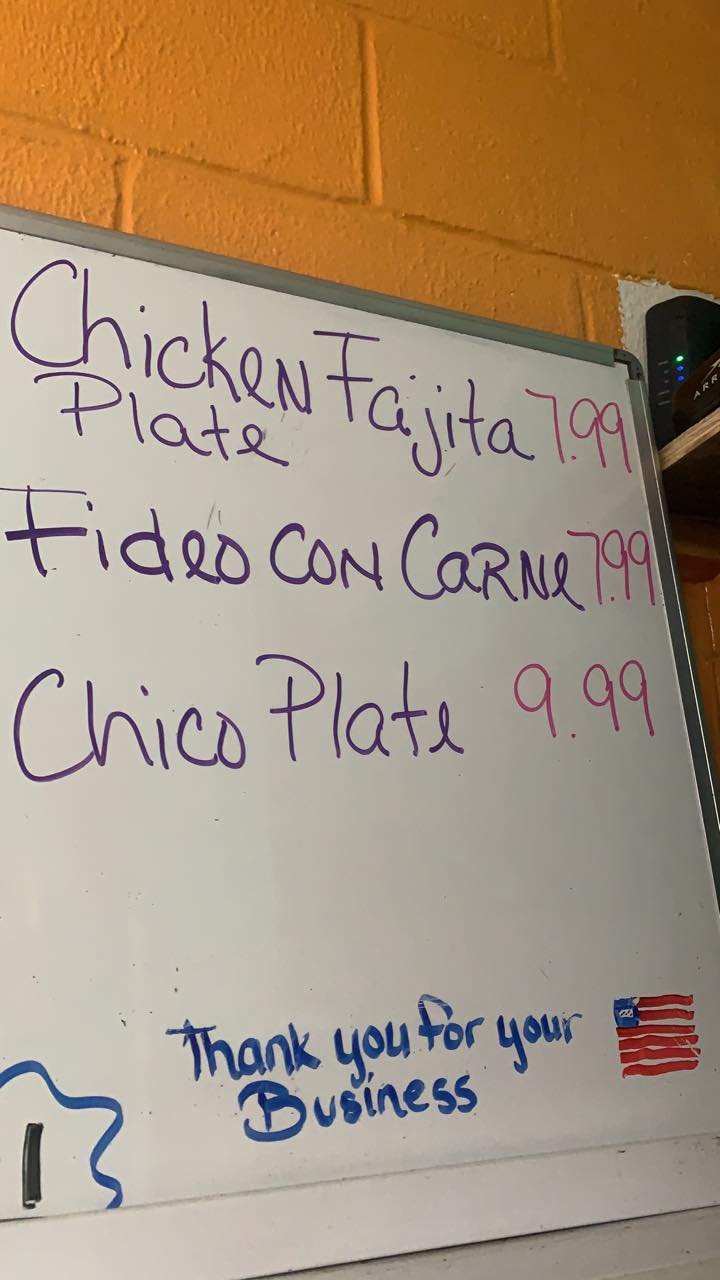 Chicken Fajita 7.99
Plate
Fideo CON CaRNe 7.99
Chico Plate 9.99
Thank you for your
Business
ARR